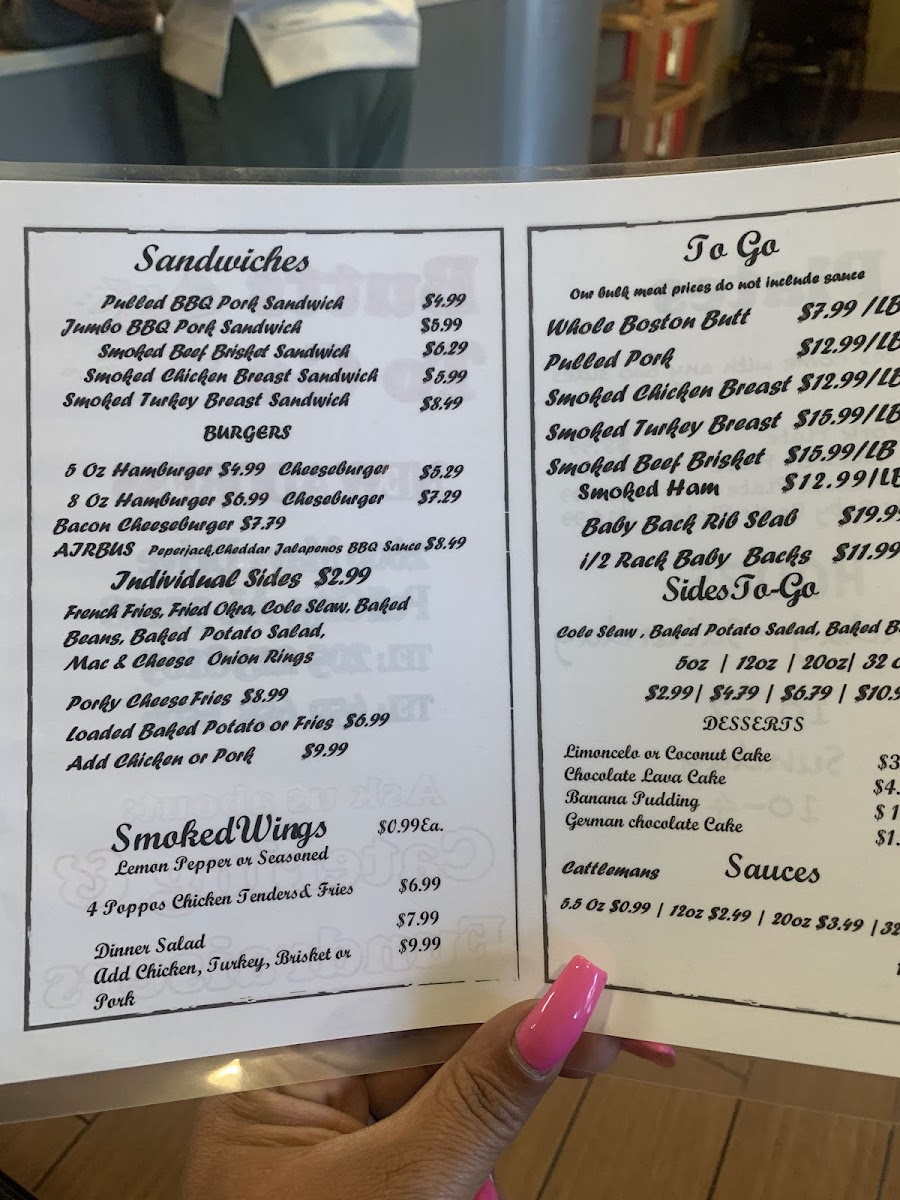 Sandwiches
Pulled BBQ Pork Sandwich $4.99
Jumbo BBQ Pork Sandwich $5.99
Smoked Beef Brisket Sandwich $6.29
Smoked Chicken Breast Sandwich $5.99
Smoked Turkey Breast Sandwich $8.49
BURGERS
5 Oz Hamburger $4.99 Cheeseburger $5.29
8 Oz Hamburger $6.99 Cheseburger $7.29
Bacon Cheeseburger $7.79
AIRBUS Peperjack,Cheddar Jalapenos BBQ Sauce $8.49
Individual Sides $2.99
French Fries, Fried Okra, Cole Slaw, Baked
Beans, Baked Potato Salad,
Mac & Cheese Onion Rings
Porky Cheese Fries $8.99
Loaded Baked Potato or Fries $6.99
Add Chicken or Pork $9.99
Smoked Wings $0.99Ea.
Lemon Pepper or Seasoned
4 Poppos Chicken Tenders& Fries $6.99
$7.99
Dinner Salad
Add Chicken, Turkey, Brisket or $9.99
Pork
To Go
Our bulk meat prices do not include sauce
Whole Boston Butt $7.99 /LB
Pulled Pork $12.99/LB
Smoked Chicken Breast $12.99/LB
Smoked Turkey Breast $15.99/LB
Smoked Beef Brisket $15.99/LB
Smoked Ham $12.99/LB
Baby Back Rib Slab $19.99
1/2 Rack Baby Backs $11.99
Sides To-Go
Cole Slaw , Baked Potato Salad, Baked B
5oz | 12oz | 20oz| 32
$2.99| $4.79 | $6.79 | $10.9
DESSERTS
Limoncelo or Coconut Cake $3
Chocolate Lava Cake $4.
Banana Pudding $1
German chocolate Cake $1.
Cattlemans Sauces
5.5 Oz $0.99 | 12oz $2.49 | 20oz $3.49 |32